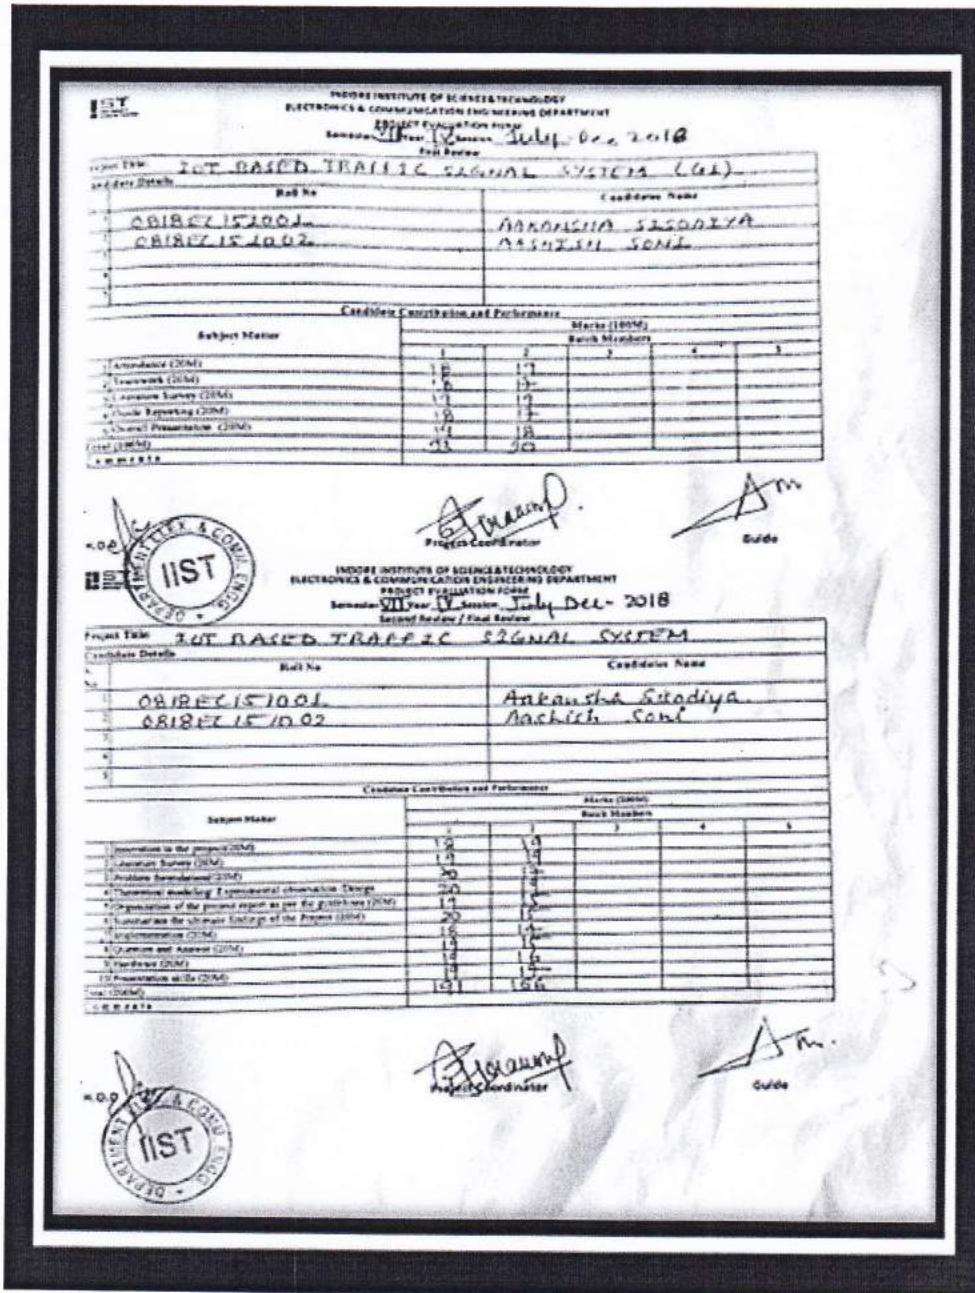 IIST
INDORE INSTITUTE OF SCIENCE & TECHNOLOGY
ELECTRONICS & COMMUNICATION ENGINEERING DEPARTMENT
PROJECT EVALUATION FORM
Semester VII Year IV Session July-Dec 2018
First Review
Project Title IOT BASED TRAFFIC SIGNAL SYSTEM (G1)
Candidate Details
Roll No Candidates Name
0818EC151001 AAKANSHA SISODIYA
0818EC151002 AASHISH SONI
Candidate Contribution and Performance
Subject Matter Marks (100M)
Batch Members
1 2 3 4 5
Attendance (20M) 18 17
Teamwork (20M) 18
Literature Survey (20M) 19 19
Guide Reporting (20M) 18 17
Overall Presentation (20M) 19 18
Total (100M) 90
Comments
H.O.D Project Coordinator Guide
DEPARTMENT ELEX. & COMM. ENGG.
IIST
INDORE INSTITUTE OF SCIENCE & TECHNOLOGY
ELECTRONICS & COMMUNICATION ENGINEERING DEPARTMENT
PROJECT EVALUATION FORM
Semester VII Year IV Session July Dec- 2018
Second Review / Final Review
Project Title IOT BASED TRAFFIC SIGNAL SYSTEM
Candidate Details
Roll No Candidates Name
0818EC151001 Aakansha Sisodiya
0818EC151002 Aashish Soni
Candidate Contribution and Performance
Subject Matter Marks (200M)
Batch Members
1 2 3 4 5
Innovation in the project (20M) 18 19
Literature Survey (20M) 19 19
Problem formulation (20M) 20
Theoretical modeling/ Experimental observation/Design 20
Organization of the project report as per the guidelines (20M) 19
Summarizes the ultimate findings of the Project (20M) 20
Implementation (20M) 18
Question and Answer (20M)
Hardware (20M) 19
10 Presentation skills (20M) 19
Total (200M) 191
Comments
H.O.D Project Coordinator Guide
DEPARTMENT ELEX. & COMM. ENGG.
IIST